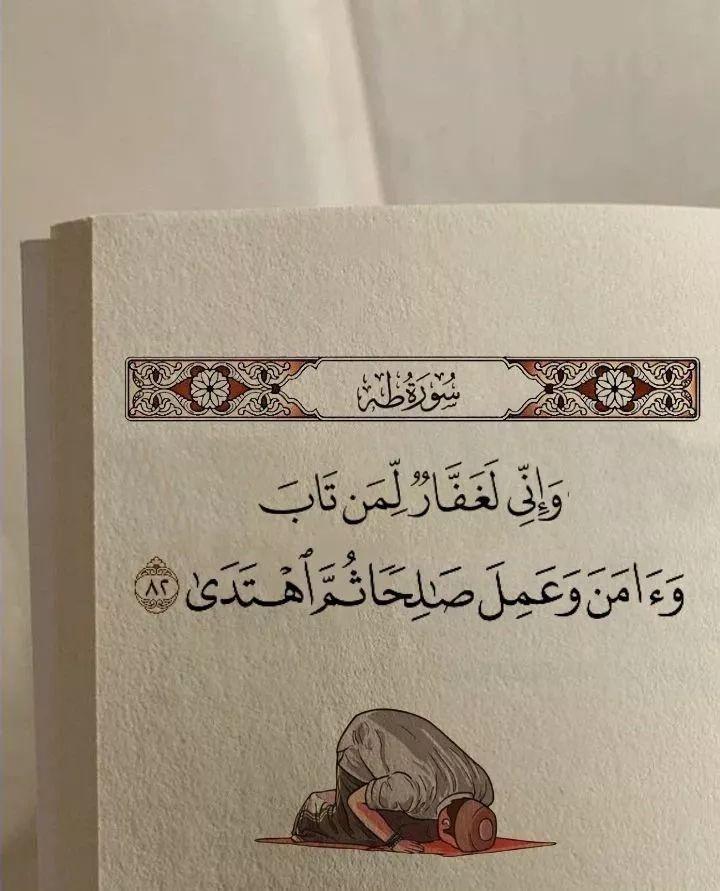 سُورَةُ طه
وَإِنِّي لَغَفَّارٌ لِّمَن تَابَ
وَءَامَنَ وَعَمِلَ صَٰلِحًا ثُمَّ ٱهْتَدَىٰ ٨٢